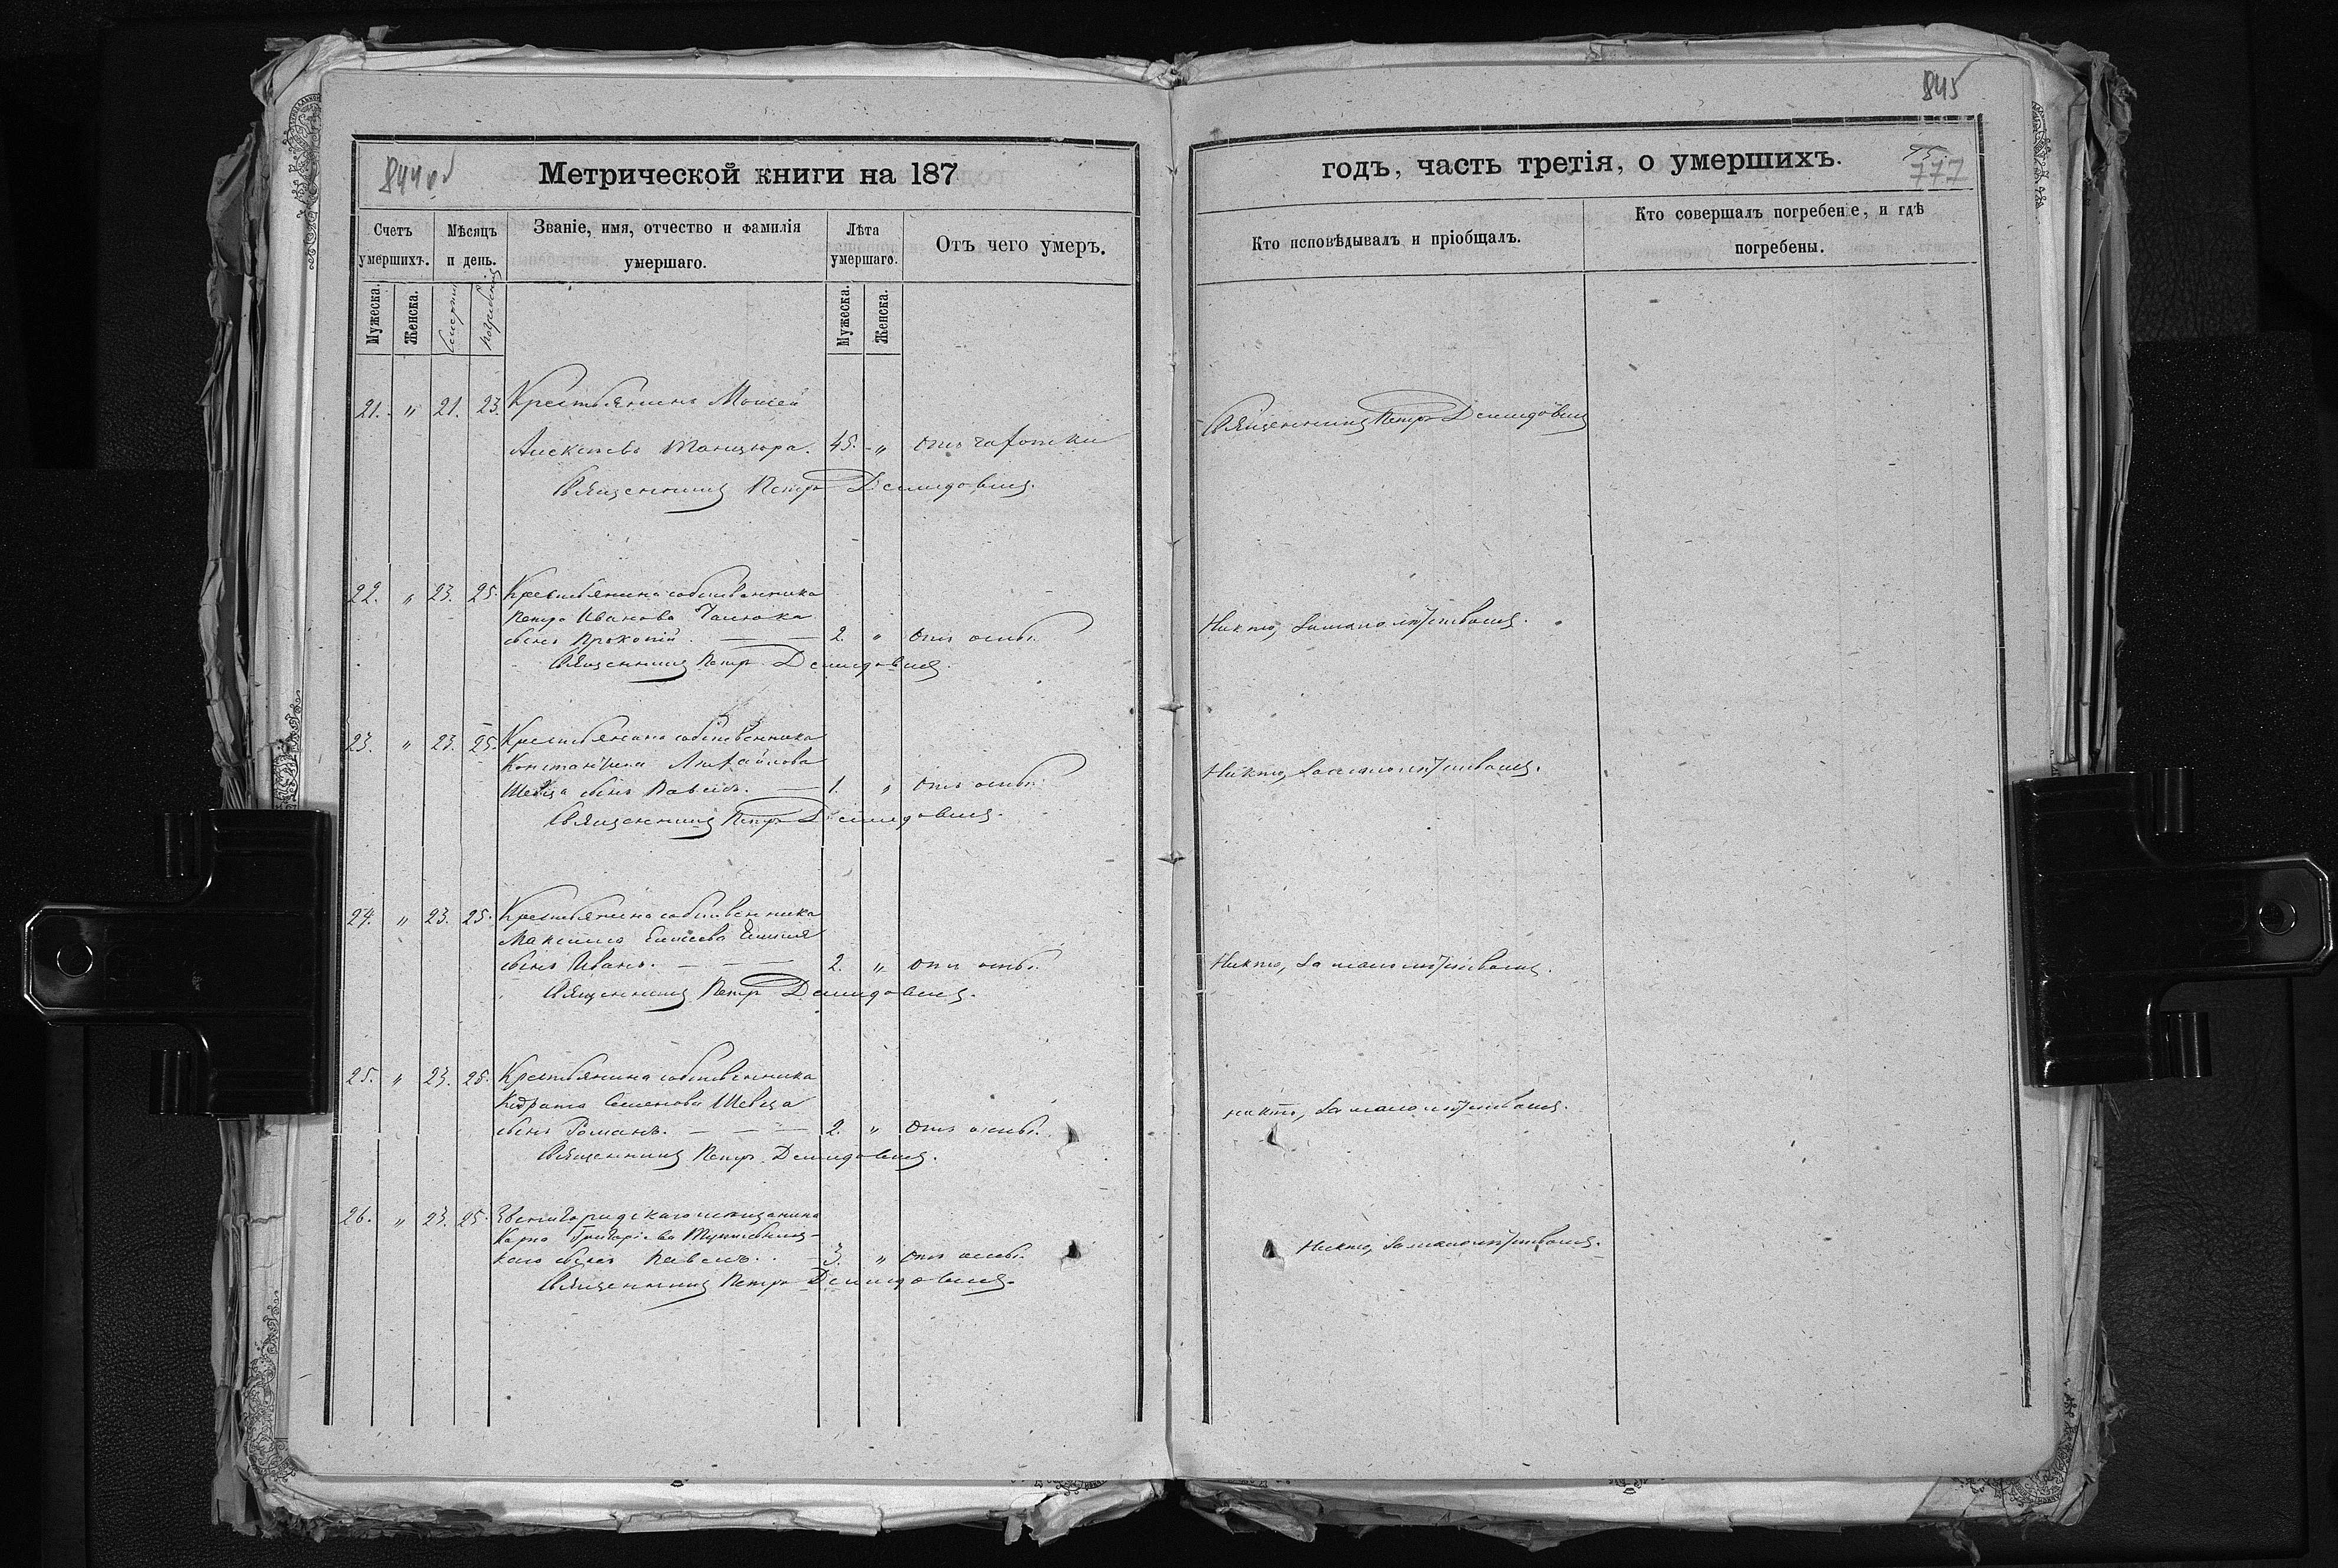 844 об
Метрической книги на 187
Счетъ умершихъ.
Мѣсяцъ и день.
Званіе, имя, отчество и фамилія умершаго.
Лѣта умершаго.
Отъ чего умеръ.
Мужеска.
Женска.
Смерти
погребенія
Мужеска.
Женска.
21. " 21. 23. Крестьянинъ Моисей
Алексѣевъ Танцюра. 45. " отъ чахотки
Священникъ Петръ Демидовичъ.
22. " 23. 25. Крестьянина собственника
Петра Иванова
сынъ Прокопій. 2. " отъ оспы.
Священникъ Петръ Демидовичъ.
23. " 23. 25. Крестьянина собственника
Константина
Шевца сынъ Павелъ. 1. " отъ оспы.
Священникъ Петръ Демидовичъ.
24. " 23. 25. Крестьянина собственника
Максима Елисеева
сынъ Иванъ. 2. " отъ оспы.
Священникъ Петръ Демидовичъ.
25. " 23. 25. Крестьянина собственника
Кодрата Семенова Шевца
сынъ Романъ. 2. " отъ оспы.
Священникъ Петръ Демидовичъ.
26. " 23. 25. Звенигородскаго мещанина
Карпа Григоріева
каго сынъ Павелъ. 3. " отъ оспы.
Священникъ Петръ Демидовичъ.
845
годъ, часть третія, о умершихъ.
777
Кто исповѣдывалъ и пріобщалъ.
Кто совершалъ погребеніе, и гдѣ погребены.
Священникъ Петръ Демидовичъ
Никто, за малолѣтствомъ.
Никто, за малолѣтствомъ.
Никто, за малолѣтствомъ.
никто, за малолѣтствомъ.
Никто, за малолѣтствомъ.